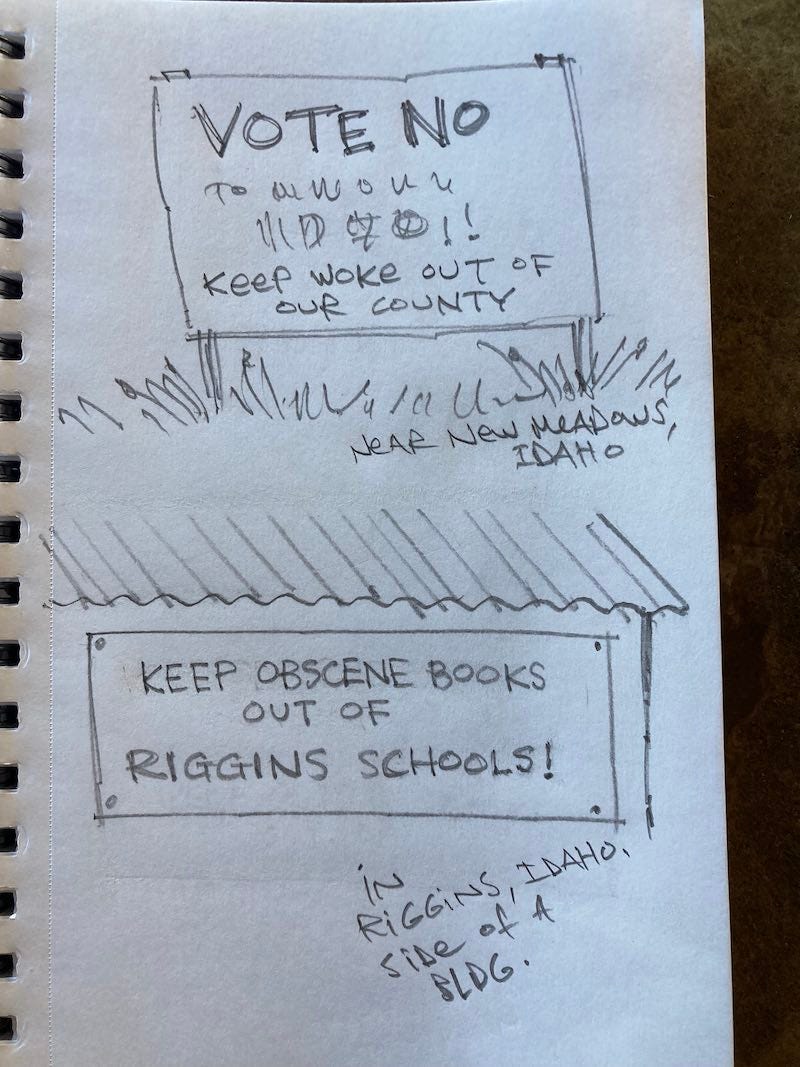 VOTE NO
TO
!!
KEEP WOKE OUT OF
OUR COUNTY
NEAR NEW MEADOWS,
IDAHO
KEEP OBSCENE BOOKS
OUT OF
RIGGINS SCHOOLS!
IN
RIGGINS, IDAHO.
SIDE OF A
BLDG.